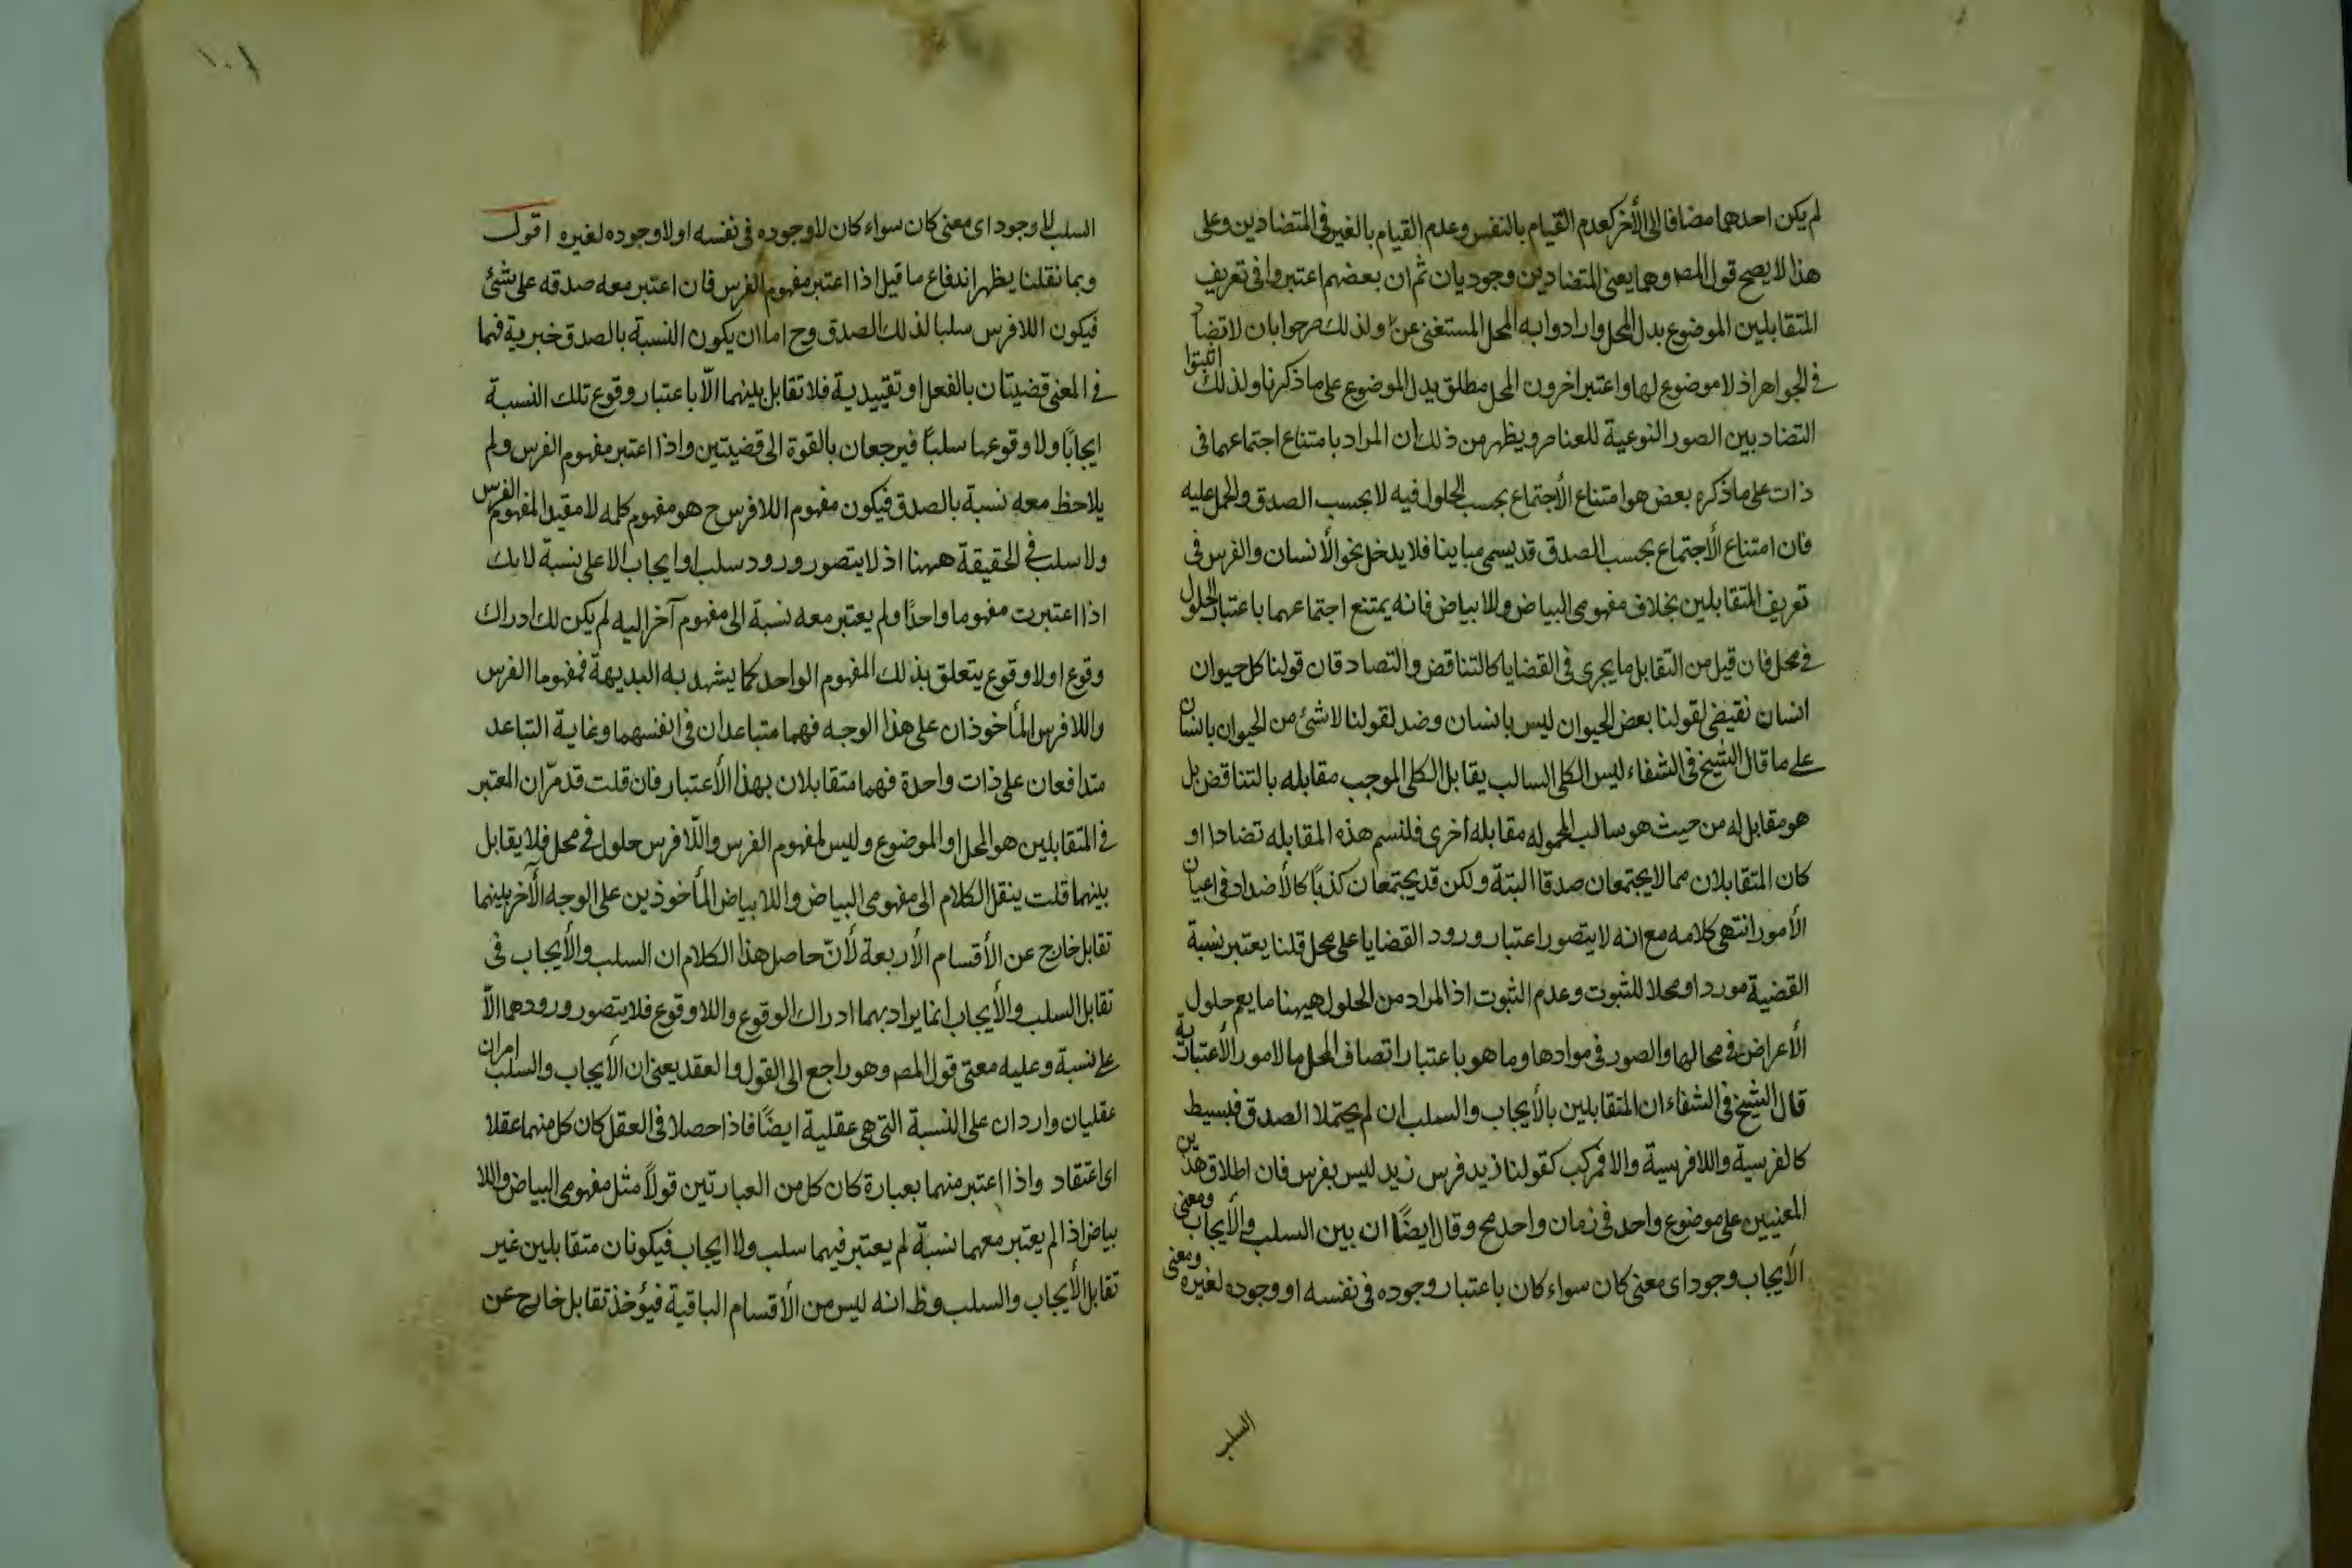 لم يكن احدهما مضافا الى الأخر كعدم القيام بالنفس وعدم القيام بالغير فى المتضادين وعلى
هذا لا يصح قول المص وهما يعنى المتضادين وجوديان ثم ان بعضهم اعتبروا فى تعريف
المتقابلين الموضوع بدل المحل وارادوا به المحل المستغنى عن ولذلك صرحوا بان لا تضاد
فى الجواهر اذ لا موضوع لها واعتبر اخرون المحل مطلق بدل الموضوع على ما ذكرنا ولذلك اثبتوا
التضاد بين الصور النوعية للعناصر ويظهر من ذلك ان المراد بامتناع اجتماعهما فى
ذات على ما ذكره بعض هو امتناع الأجتماع بحسب الحلول فيه لا بحسب الصدق والحمل عليه
فان امتناع الأجتماع بحسب الصدق قد يسمى مباينا فلا يدخل نحو الأنسان والفرس فى
تعريف المتقابلين بخلاف مفهومى البياض واللا بياض فانه يمتنع اجتماعهما باعتبار الحلول
فى محل فان قيل من التقابل ما يجرى فى القضايا كالتناقض والتضاد فان قولنا كل حيوان
انسان نقيض لقولنا بعض الحيوان ليس بانسان وضد لقولنا لا شئ من الحيوان بانسان
على ما قال الشيخ فى الشفاء ليس الكلى السالب يقابل الكلى الموجب مقابله بالتناقض بل
هو مقابل له من حيث هو سالب لمحموله مقابله أخرى فلنسم هذه المقابله تضادا او
كان المتقابلان مما لا يجتمعان صدقا البتة ولكن قد يجتمعان كذبًا كالأضداد فى اعيان
الأمور انتهى كلامه مع انه لا يتصور اعتبار ورود القضايا على محل قلنا يعتبر نسبة
القضية موردا ومحلا للثبوت وعدم الثبوت اذ المراد من الحلول هيهنا ما يعم حلول
الأعراض فى محالها والصور فى موادها وما هو باعتبار اتصاف المحل مالامور الأعتباريّة
قال الشيخ فى الشفاء ان المتقابلين بالأيجاب والسلب ان لم يحتملا الصدق فبسيط
كالفرسية واللافرسية والا فمركب كقولنا زيد فرس زيد ليس بفرس فان اطلاق هذين
المعنيين على موضوع واحد فى زمان واحد مح وقال ايضًا ان بين السلب والأيجاب ومعنى
الأيجاب وجود اى معنى كان سواء كان باعتبار وجوده فى نفسه او وجوده لغيره ومعنى
السلب
السلب لا وجود اى معنى كان سواء كان لا وجوده فى نفسه او لا وجوده لغيره اقول
وبما نقلنا يظهر اندفاع ما قيل اذا اعتبر مفهوم الفرس فان اعتبر معه صدقه على شئ
فيكون اللافرس سلبا لذلك الصدق وح اما ان يكون النسبة بالصدق خبرية فهما
فى المعنى قضيتان بالفعل او تقييدية فلا تقابل بينهما الّا باعتبار وقوع تلك النسبة
ايجابًا ولا وقوعها سلبًا فيرجعان بالقوة الى قضيتين واذا اعتبر مفهوم الفرس ولم
يلاحظ معه نسبة بالصدق فيكون مفهوم اللافرس ح هو مفهوم كلمه لا مقيد المفهوم الفرس
ولا سلب فى الحقيقة ههنا اذ لا يتصور ورود سلب او ايجاب الا على نسبة لانك
اذا اعتبرت مفهوما واحدًا ولم يعتبر معه نسبة الى مفهوم آخر اليه لم يكن لك ادراك
وقوع او لا وقوع يتعلق بذلك المفهوم الواحد كما يشهد به البديهة فمفهوما الفرس
واللافرس المأخوذان على هذا الوجه فهما متباعدان فى انفسهما وغاية التباعد
متدافعان على ذات واحدة فهما متقابلان بهذا الأعتبار فان قلت قد مرّ ان المعتبر
فى المتقابلين هو المحل او الموضوع وليس لمفهوم الفرس واللّافرس حلول فى محل فلا يقابل
بينهما قلت ينقل الكلام الى مفهومى البياض واللا بياض المأخوذين على الوجه الآخر بينهما
تقابل خارج عن الأقسام الأربعة لأنّ حاصل هذا الكلام ان السلب والأيجاب فى
تقابل السلب والأيجاب انما يراد بهما ادراك الوقوع واللا وقوع فلا يتصور ورودهما الّا
على نسبة وعليه معنى قول المص وهو راجع الى القول والعقد يعنى ان الأيجاب والسلب امران
عقليان واردان على النسبة التى هى عقلية ايضًا فاذا حصلا فى العقل كان كل منهما عقلا
اى اعتقاد واذا اعتبر منهما بعبارة كان كل من العبارتين قولًا مثل مفهومى البياض واللا
بياض اذا لم يعتبر معهما نسبة لم يعتبر فيهما سلب ولا ايجاب فيكونان متقابلين غير
تقابل الأيجاب والسلب وظ انه ليس من الأقسام الباقية فيؤخذ تقابل خارج عن